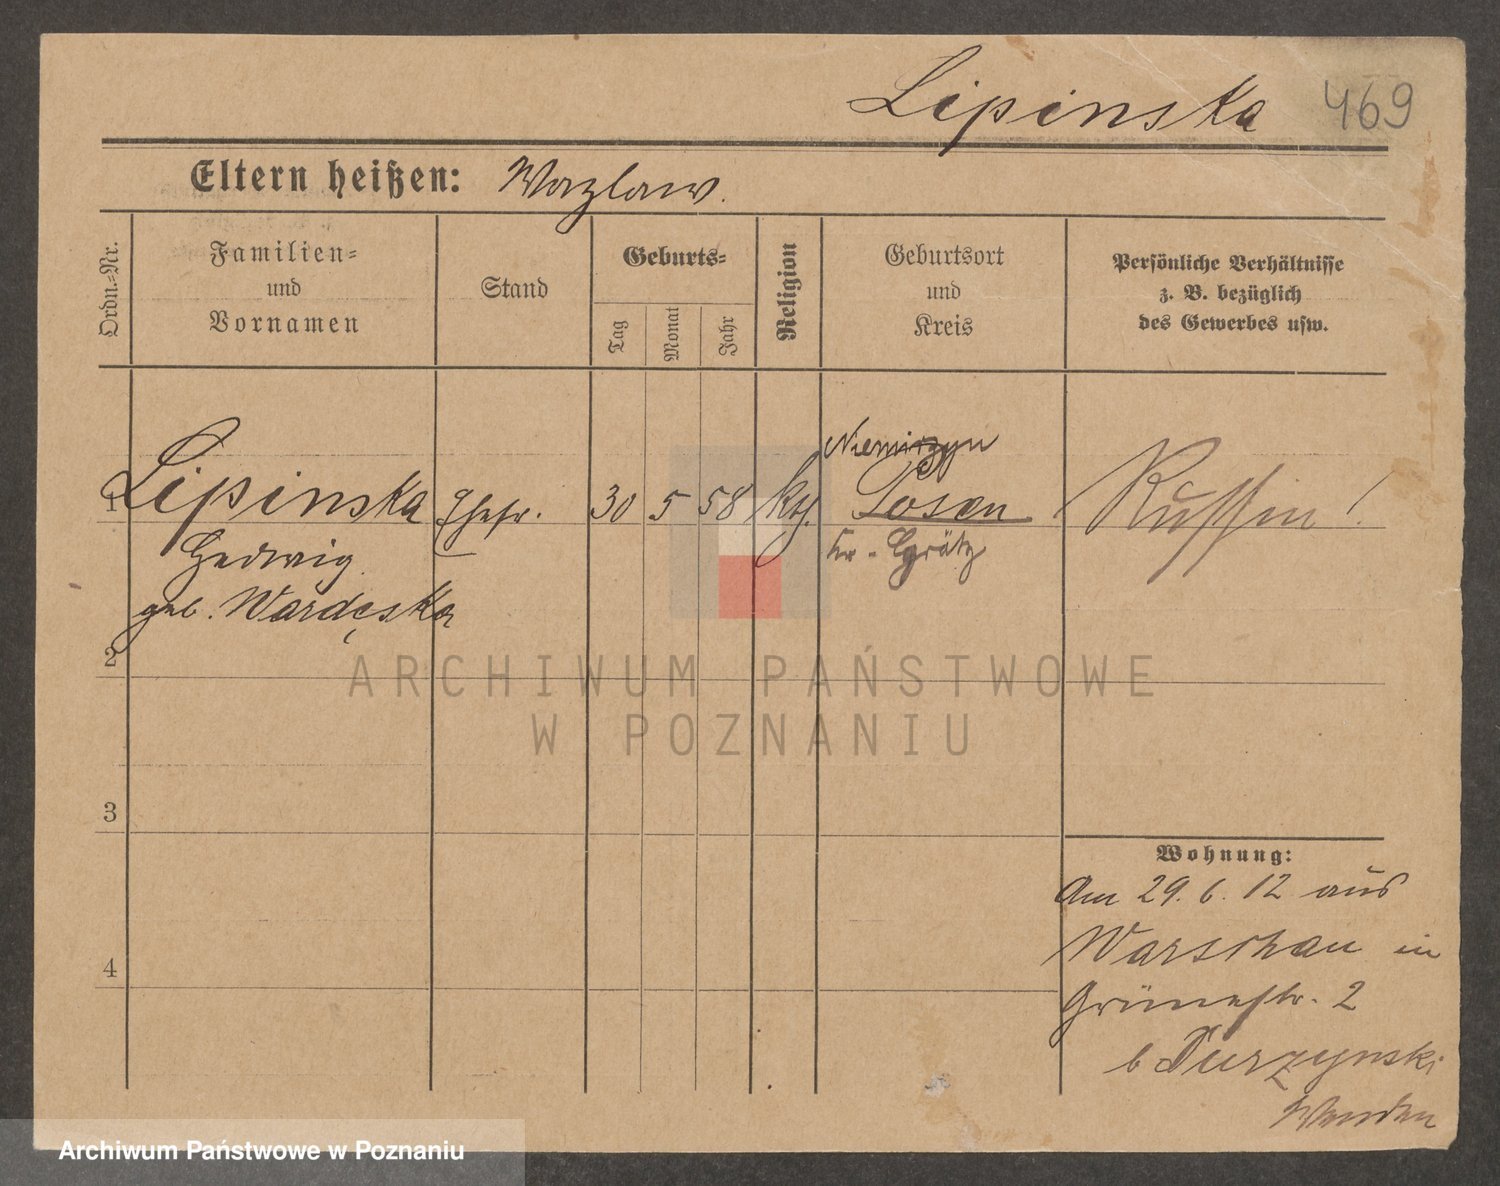 Lipinska 469
Eltern heißen: Wazlaw.
Ordn.=Nr.
Familien=
und
Vornamen
Stand
Geburts=
Tag
Monat
Jahr
Religion
Geburtsort
und
Kreis
Persönliche Verhältnisse
z. B. bezüglich
des Gewerbes usw.
Niemirzyn
1 Lipinska Ehefr. 30 5 58 kth. Posen Russin!
Hedwig Kr. Grätz
geb. Wardęska
2
ARCHIWUM PAŃSTWOWE
W POZNANIU
3
Wohnung:
Am 29. 6. 12 aus
Warschau in
4
Grünestr. 2
b Turzynski
Archiwum Państwowe w Poznaniu